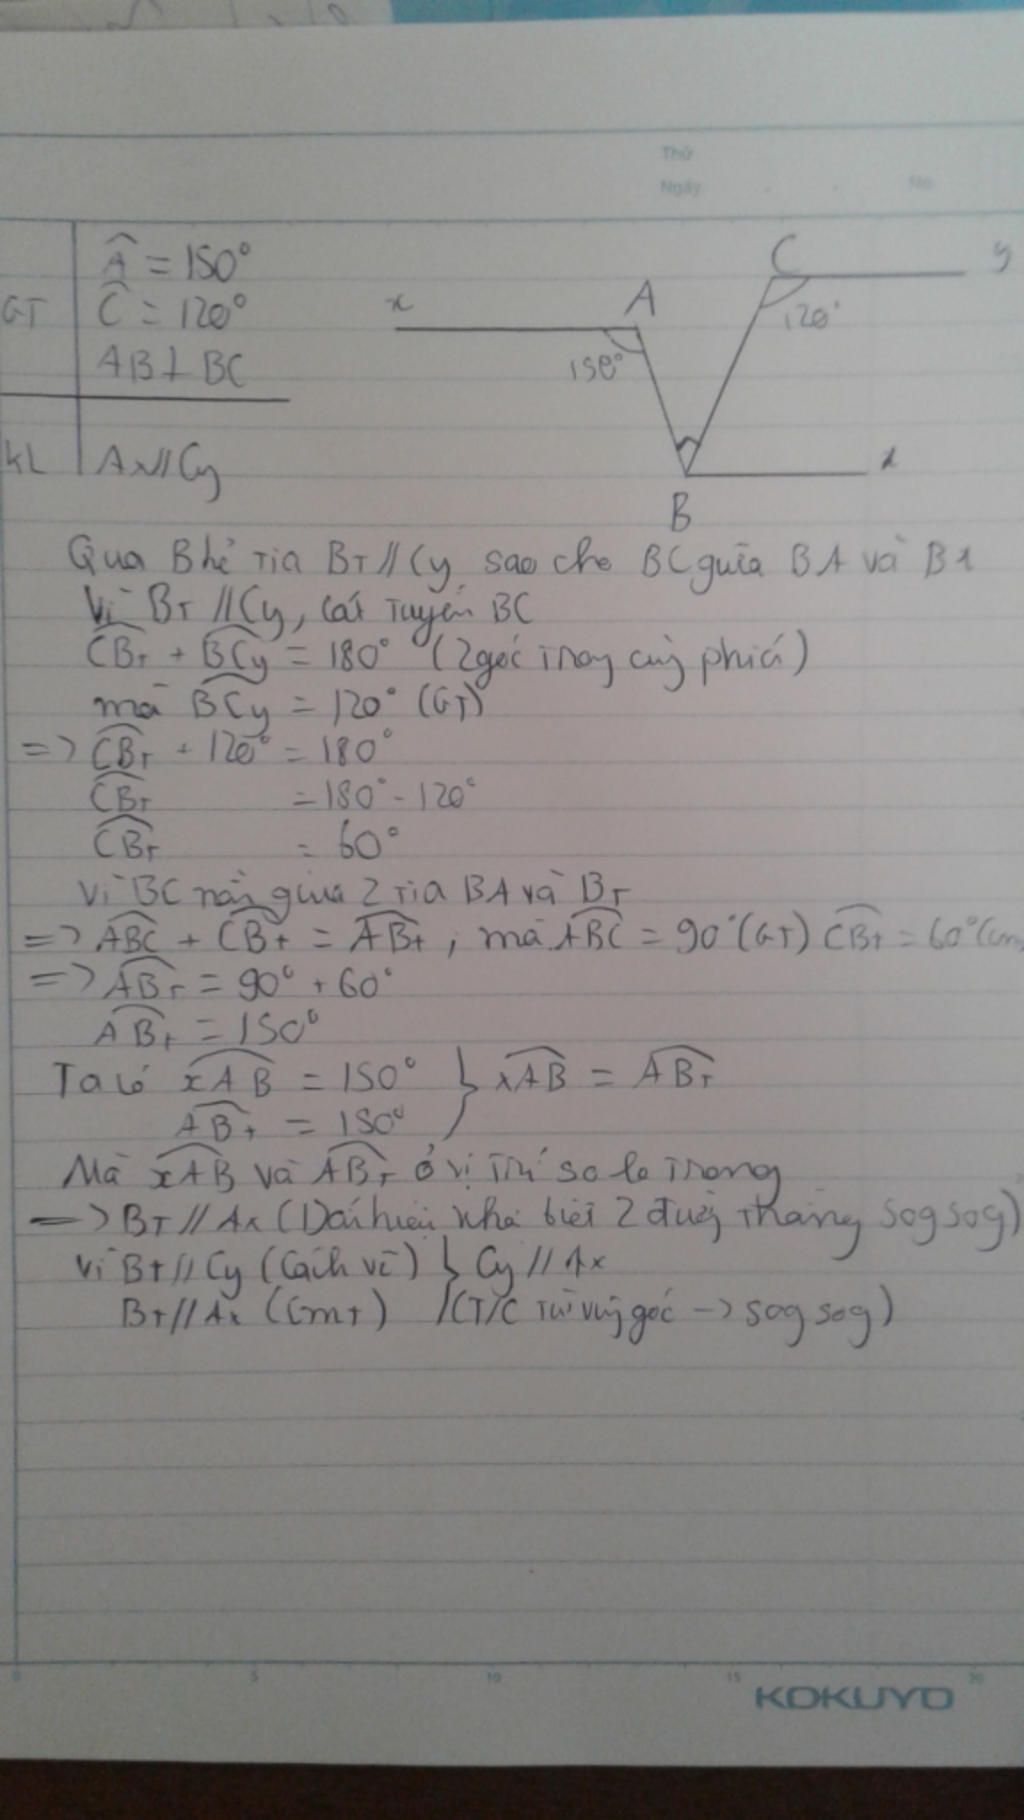 Thứ
Ngày . . No
GT
Â = 150°
Ĉ = 120°
AB ⊥ BC
KL
Ax // Cy
x
A
150°
C
y
120°
B
t
Qua B kẻ tia Bt // Cy sao cho BC giữa BA và Bt
Vì Bt // Cy, cát tuyến BC
CBt + BCy = 180° (2 góc trong cùng phía)
mà BCy = 120° (GT)
=> CBt + 120° = 180°
CBt = 180° - 120°
CBt = 60°
Vì BC nằm giữa 2 tia BA và Bt
=> ABC + CBt = ABt, mà ABC = 90° (GT) CBt = 60° (cm
=> ABt = 90° + 60°
ABt = 150°
Ta có xAB = 150° } xAB = ABt
ABt = 150°
Mà xAB và ABt ở vị trí so le trong
=> Bt // Ax (Dấu hiệu nhận biết 2 đường thẳng sog sog)
Vì Bt // Cy (Cách vẽ) } Cy // Ax
Bt // Ax (Cmt) (T/C từ vuông góc -> sog sog)
0 5 10 15 20
KOKUYO